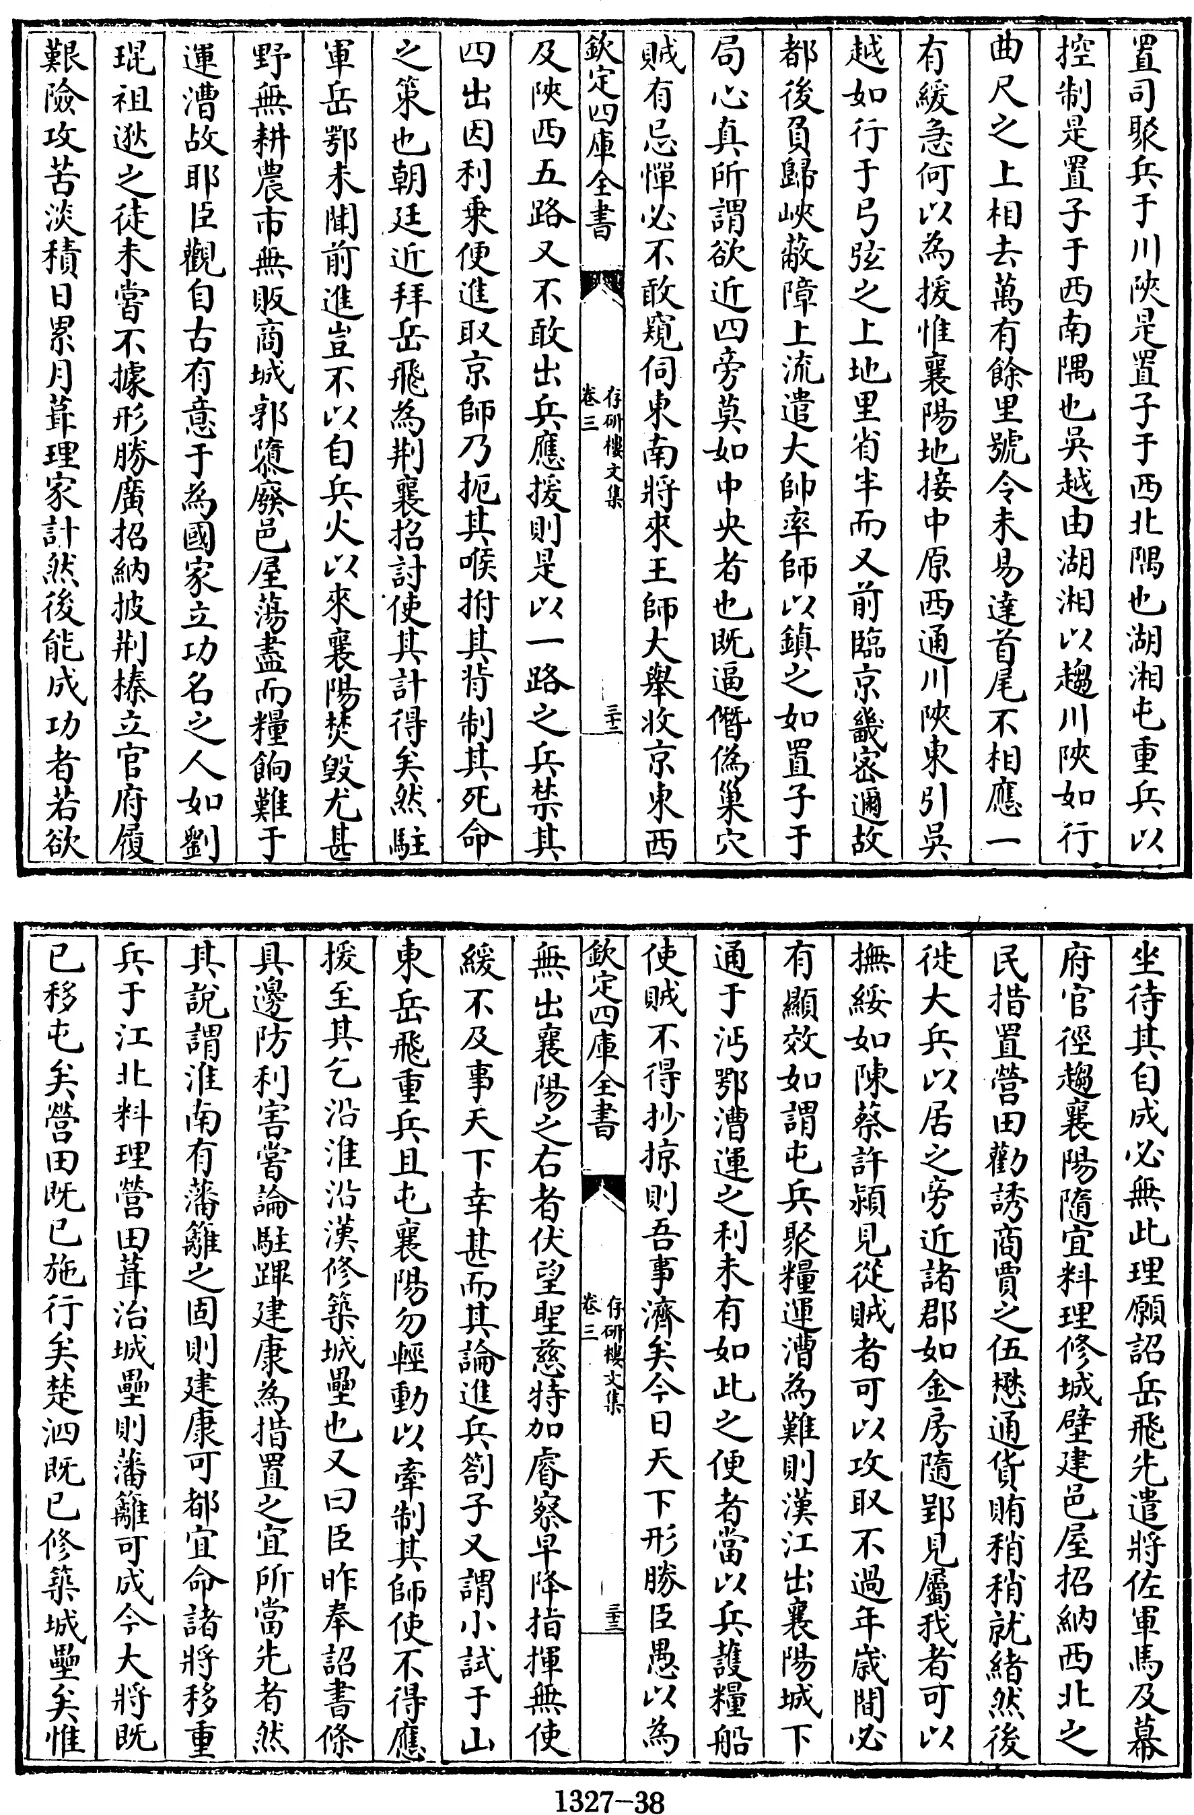 置司聚兵于川陝是置子于西北隅也湖湘屯重兵以
控制是置子于西南隅也吳越由湖湘以趨川陝如行
曲尺之上相去萬有餘里號令未易達首尾不相應一
有緩急何以為援惟襄陽地接中原西通川陝東引吳
越如行于弓弦之上地里省半而又前臨京畿密邇故
都後負歸峽蔽障上流遣大帥率師以鎮之如置子于
局心真所謂欲近四旁莫如中央者也既逼僭偽巢穴
賊有忌憚必不敢窺伺東南將來王師大舉收京東西
欽定四庫全書
存研樓文集
卷三
三十二
及陝西五路又不敢出兵應援則是以一路之兵禁其
四出因利乗便進取京師乃扼其喉拊其背制其死命
之策也朝廷近拜岳飛為荆襄招討使其計得矣然駐
軍岳鄂未聞前進豈不以自兵火以來襄陽焚毀尤甚
野無耕農市無販商城郭隳廢邑屋蕩盡而糧餉難于
運漕故耶臣觀自古有意于為國家立功名之人如劉
琨祖逖之徒未嘗不據形勝廣招納披荆榛立官府履
艱險攻苦淡積日累月葺理家計然後能成功者若欲
坐待其自成必無此理願詔岳飛先遣將佐軍馬及幕
府官徑趨襄陽隨宜料理修城壁建邑屋招納西北之
民措置營田勸誘商賈之伍懋通貨賄稍稍就緒然後
徙大兵以居之旁近諸郡如金房隨郢見屬我者可以
撫綏如陳蔡許潁見從賊者可以攻取不過年歲間必
有顯效如謂屯兵聚糧運漕為難則漢江出襄陽城下
通于沔鄂漕運之利未有如此之便者當以兵護糧船
使賊不得抄掠則吾事濟矣今日天下形勝臣愚以為
欽定四庫全書
存研樓文集
卷三
三十三
無出襄陽之右者伏望聖慈特加睿察早降指揮無使
緩不及事天下幸甚而其論進兵劄子又謂小試于山
東岳飛重兵且屯襄陽勿輕動以牽制其師使不得應
援至其乞沿淮沿漢修築城壘也又曰臣昨奉詔書條
具邊防利害嘗論駐蹕建康為措置之宜所當先者然
其說謂淮南有藩籬之固則建康可都宜命諸將移重
兵于江北料理營田葺治城壘則藩籬可成今大將既
已移屯矣營田既已施行矣楚泗既已修築城壘矣惟
1327-38